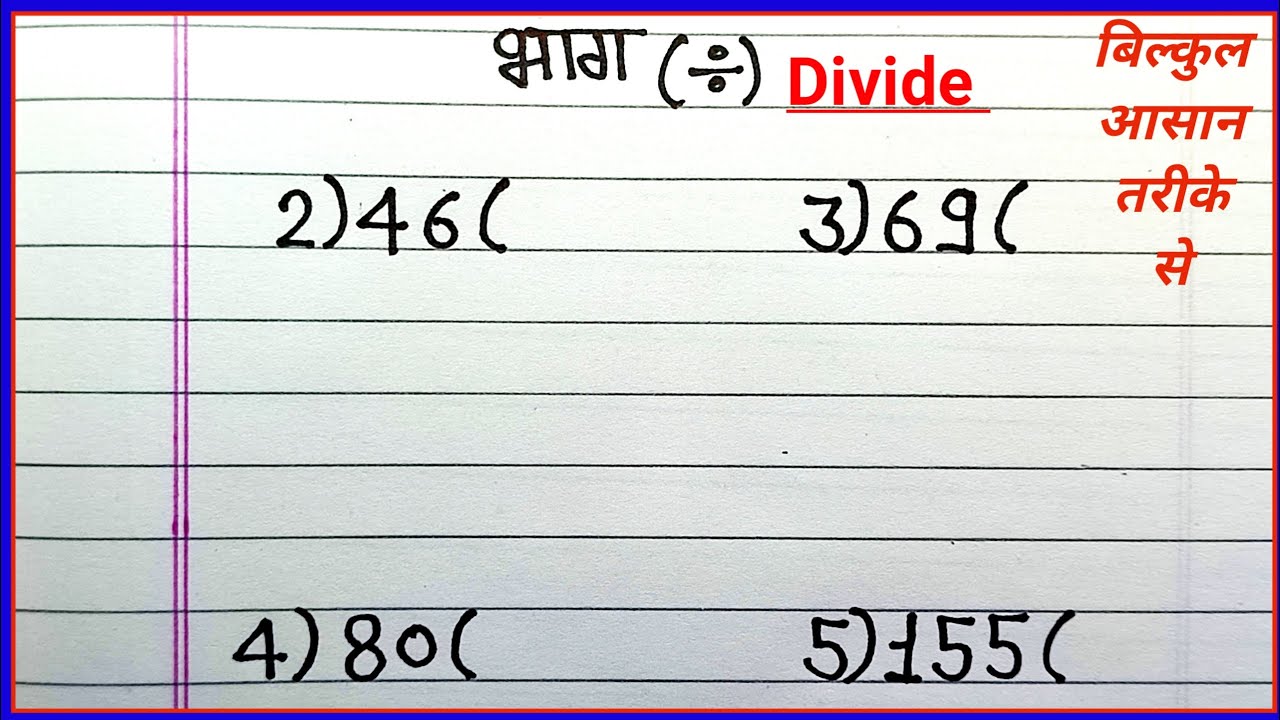 भाग (÷) Divide
बिल्कुल
आसान
तरीके
से
2)46(
3)69(
4)80(
5)155(